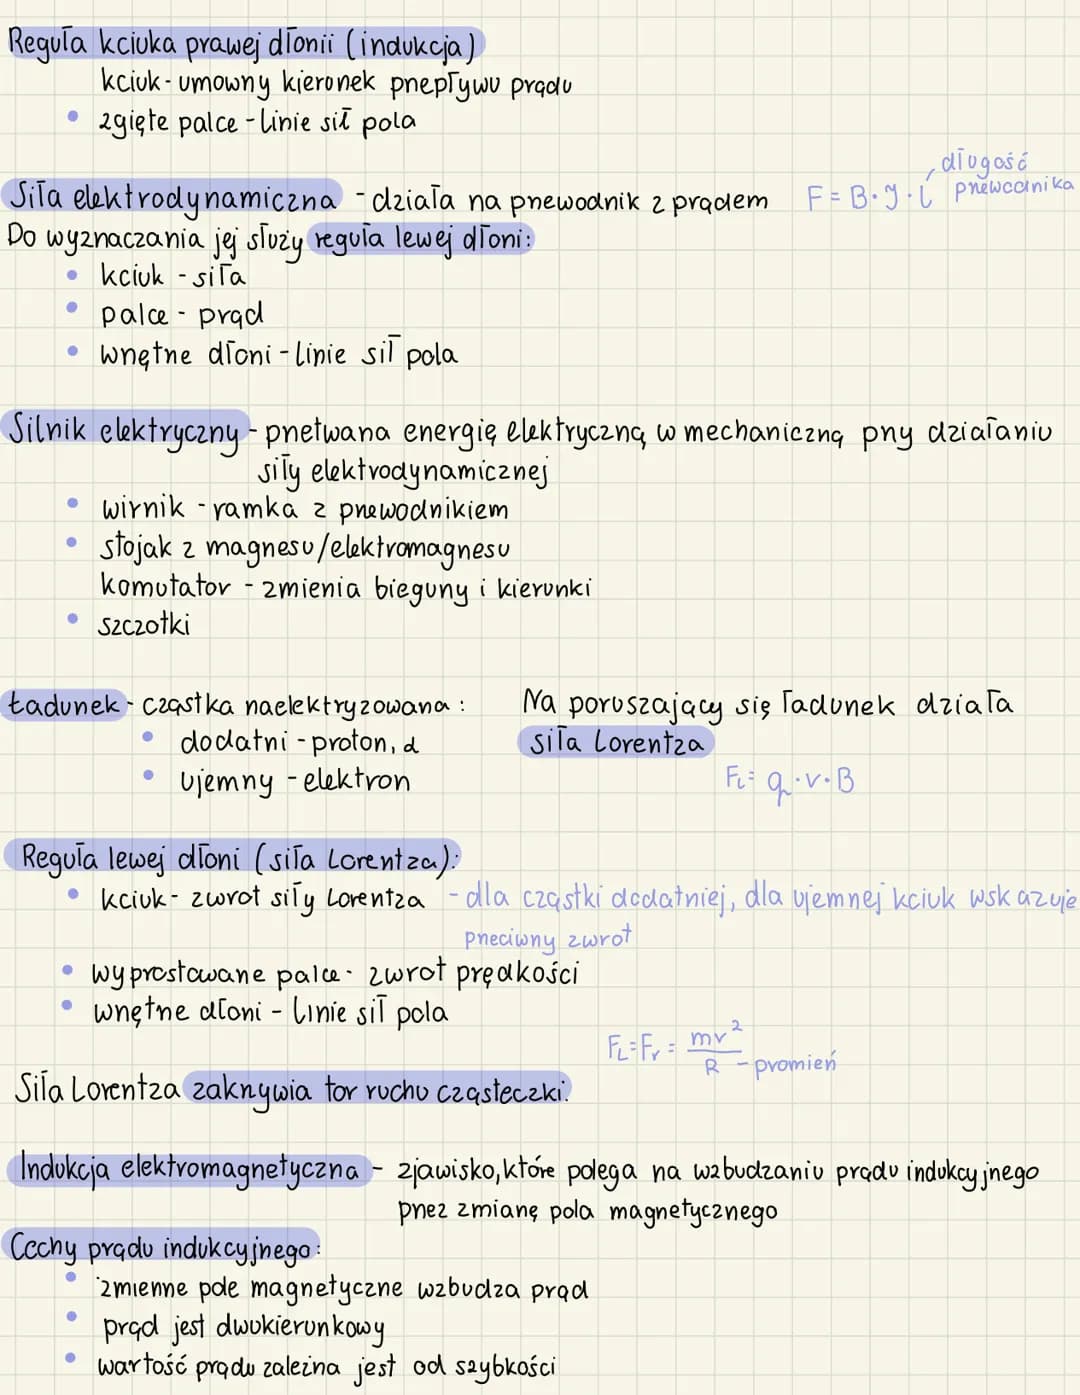 Reguła kciuka prawej dłonii (indukcja)
kciuk - umowny kierunek przepływu prądu
• zgięte palce - linie sił pola
Siła elektrodynamiczna - działa na przewodnik z prądem F = B · I · l długość przewodnika
Do wyznaczania jej służy reguła lewej dłoni:
• kciuk - siła
• palce - prąd
• wnętrze dłoni - linie sił pola
Silnik elektryczny - przetwarza energię elektryczną w mechaniczną przy działaniu
siły elektrodynamicznej
• wirnik - ramka z przewodnikiem
• stojak z magnesu/elektromagnesu
komutator - zmienia bieguny i kierunki
• szczotki
Ładunek - cząstka naelektryzowana:
• dodatni - proton, α
• ujemny - elektron
Na poruszający się ładunek działa
siła Lorentza
F_L = q · v · B
Reguła lewej dłoni (siła Lorentza):
• kciuk - zwrot siły Lorentza - dla cząstki dodatniej, dla ujemnej kciuk wskazuje
przeciwny zwrot
• wyprostowane palce - zwrot prędkości
• wnętrze dłoni - linie sił pola
F_L = F_r = mv²/R - promień
Siła Lorentza zakrzywia tor ruchu cząsteczki.
Indukcja elektromagnetyczna - zjawisko, które polega na wzbudzaniu prądu indukcyjnego
przez zmianę pola magnetycznego
Cechy prądu indukcyjnego:
• zmienne pole magnetyczne wzbudza prąd
• prąd jest dwukierunkowy
• wartość prądu zależna jest od szybkości